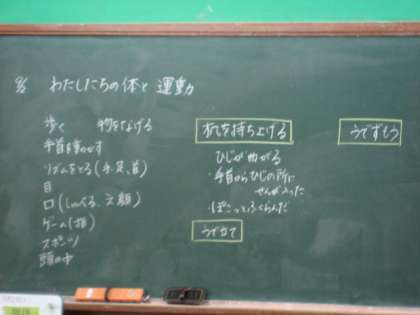 わたしたちの体と運動
歩く 物をなげる
手首を動かす
リズムをとる(手、足、首)
目
口(しゃべる、笑顔)
ゲーム(指)
スポーツ
頭の中
机を持ち上げる
ひじが曲がる
・手首からひじの所に
せんが入った
・ぽこっとふくらんだ
うで立て
うでずもう